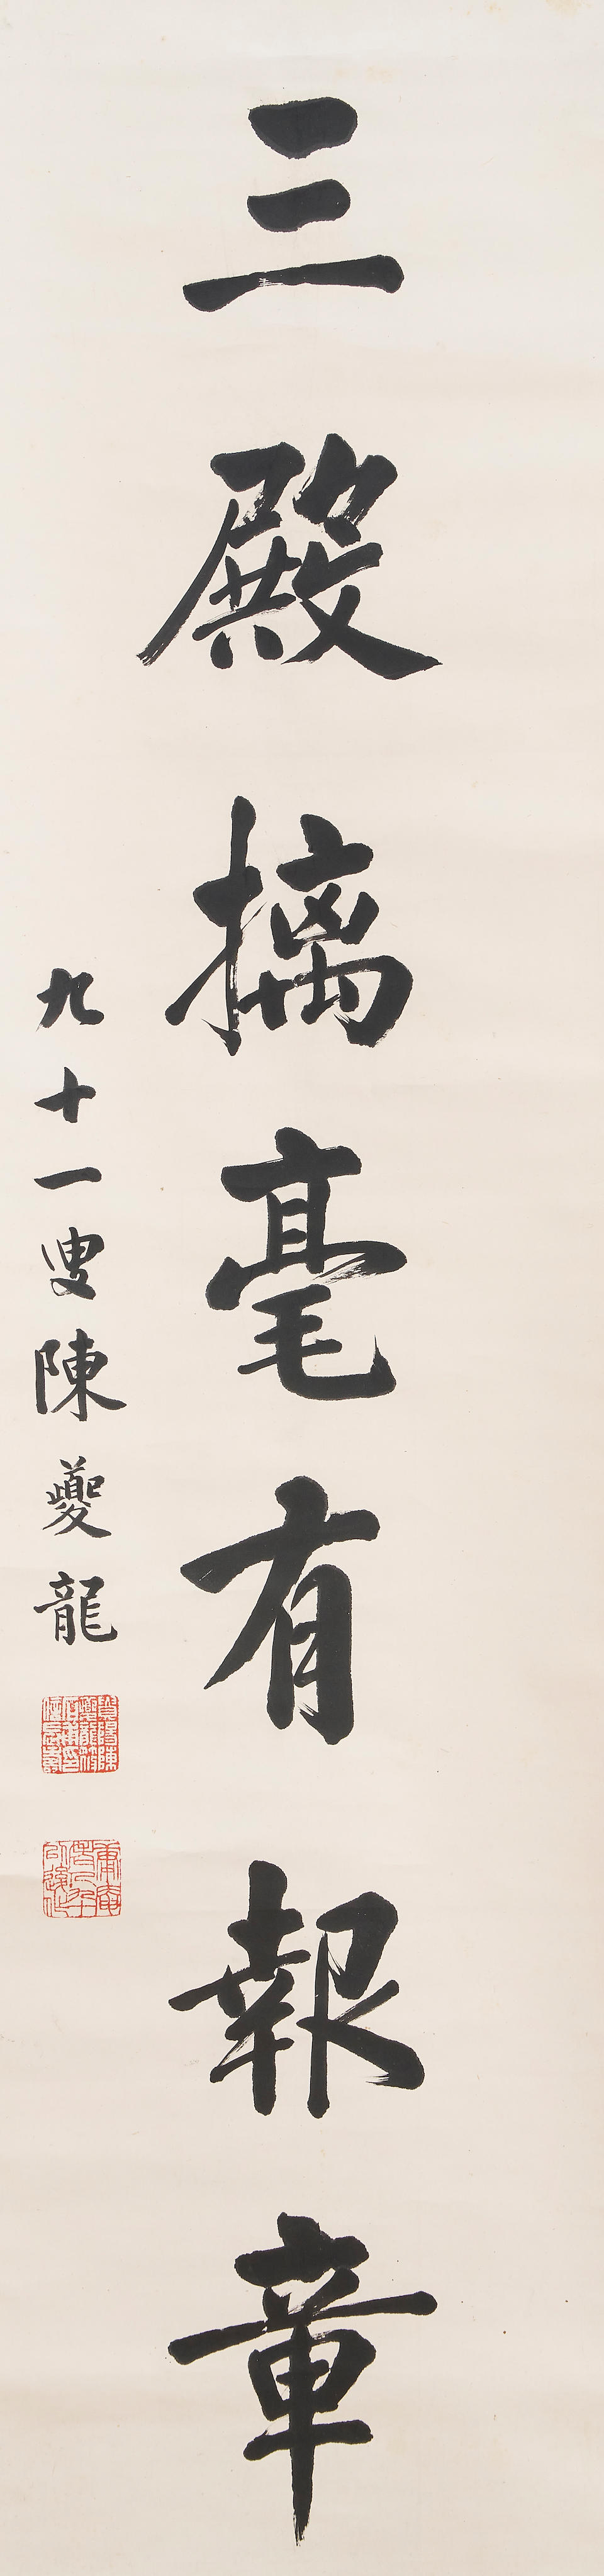 三殿摛毫有報章
九十一叟陳夔龍